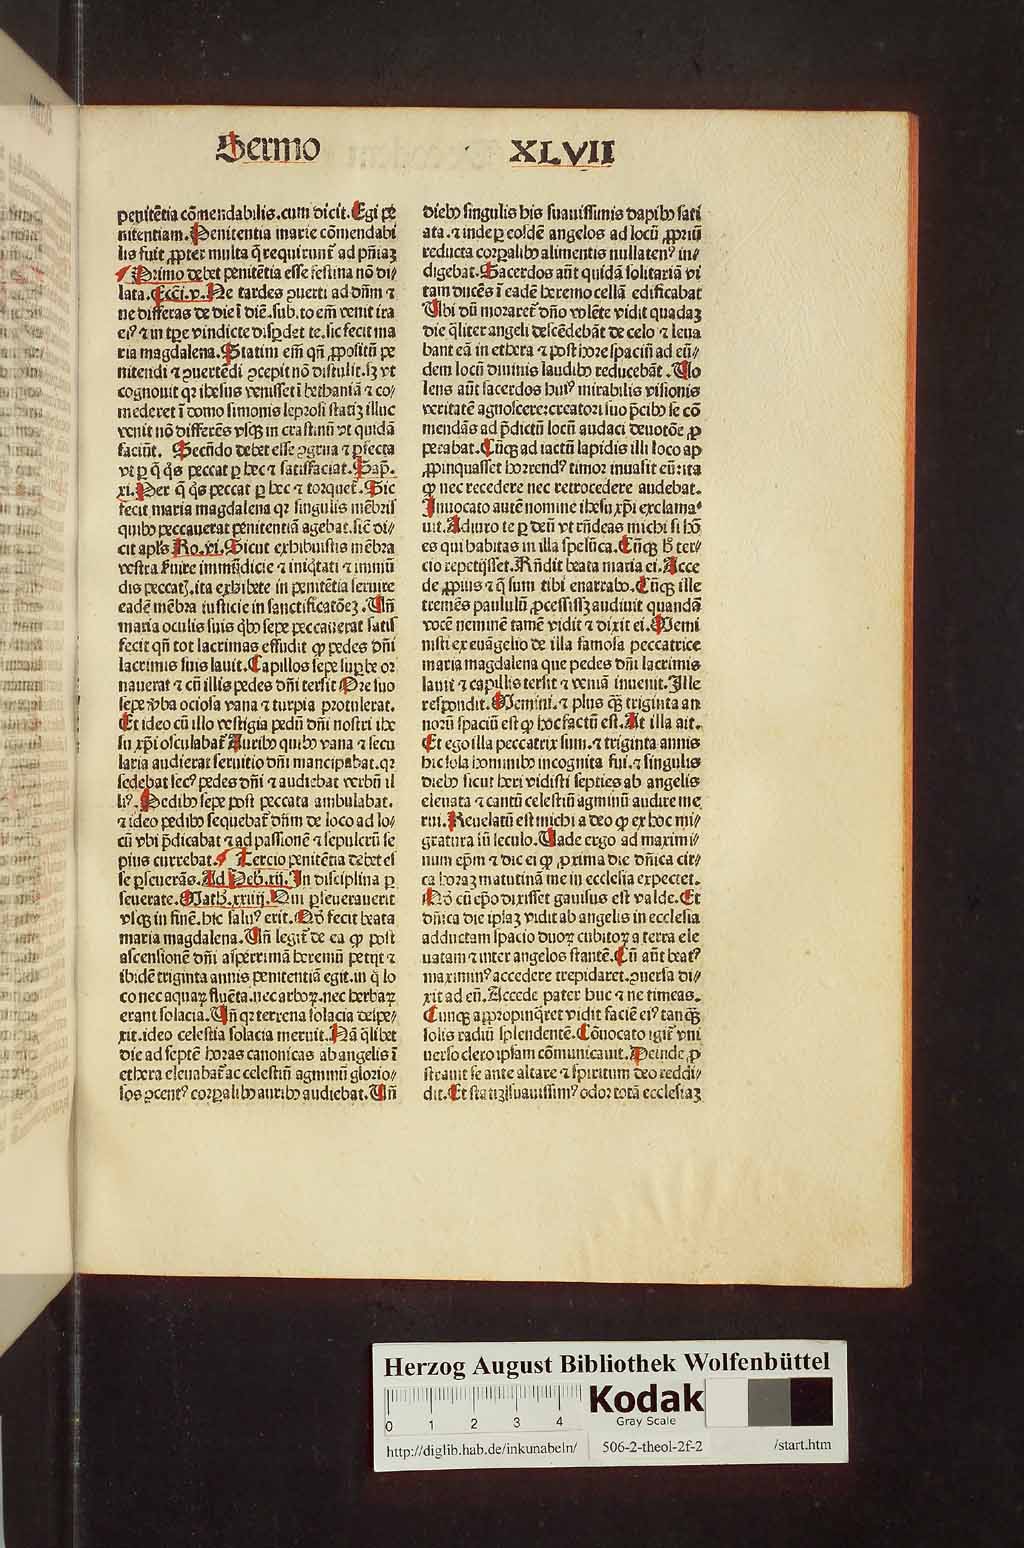 Sermo XLVII
penitẽtia cõmendabilis. cum dicit. Egi pe
nitentiam. Penitentia marie cõmendabi
lis fuit ꝓpter multa q̃ requirunt᷑ ad pñiaꝫ
Primo debet penitẽtia esse festina nõ di⸗
lata. Ecci. v. Ne tardes ꝯuerti ad dñm ⁊
ne differas de die ĩ diẽ. sub. to em̃ venit ira
eiꝰ ⁊ in tꝑe vindicte disꝑdet te. sic fecit ma
ria magdalena. Statim em̃ qñ ꝓpositũ pe
nitendi ⁊ ꝯuertẽdi ꝯcepit nõ distulit. sꝫ vt
cognouit qꝛ ihesus venisset ĩ bethaniã ⁊ co⸗
mederet ĩ domo simonis leprosi statiꝫ illuc
venit nõ differẽs vsqꝫ in crastinũ vt quidã
faciũt. Secũdo debet esse ꝯgrua ⁊ ꝑfecta
vt ꝑ q̃ q̇s peccat ꝑ hec ⁊ satisfaciat. Sap̃.
xi. Per q̃ q̇s peccat ꝑ hec ⁊ torquet᷑. Sic
fecit maria magdalena qꝛ singulis mẽbris
quibꝰ peccauerat penitentiã agebat. sic̃ di⸗
cit apl̃s Ro. vi. Sicut exhibuistis mẽbra
vestra ẜuire immũdicie ⁊ iniq̇tati ⁊ immũ
dis peccatꝭ. ita exhibete in penitẽtia seruire
eadẽ mẽbra iusticie in sanctificatõeꝫ. Uñ
maria oculis suis q̇bꝰ sepe peccauerat satis
fecit qñ tot lacrimas effudit ꝙ pedes dñi
lacrimis suis lauit. Capillos sepe suꝑbe or
nauerat ⁊ cũ illis pedes dñi tersit Ore suo
sepe v̾ba ociosa vana ⁊ turpia protulerat.
Et ideo cũ illo vestigia pedũ dñi nostri ihe
su xp̃i osculabat᷑ Auribꝰ quibꝰ vana ⁊ secu
laria audierat seruitio dñi mancipabat. qꝛ
sedebat secꝰ pedes dñi ⁊ audiebat verbũ il
liꝰ. Pedibꝰ sepe post peccata ambulabat.
⁊ ideo pedibꝰ sequebat᷑ dñm de loco ad lo⸗
cũ vbi p̃dicabat ⁊ ad passionẽ ⁊ sepulcrũ se
pius currebat. Tercio penitẽtia debet es
se ꝑseuerãs. Ad Heb. xij. In disciplina ꝑ
seuerate. Math. xxiiij. Qui ꝑseuerauerit
vsqꝫ in finẽ. hic saluꝰ erit. Hoc̃ fecit beata
maria magdalena. Uñ legit᷑ de ea ꝙ post
ascensionẽ dñi asperrimã heremũ petijt ⁊
ibidẽ triginta annis penitentiã egit. in q̊ lo
co nec aquaꝝ fluẽta. nec arboꝝ. nec herbaꝝ
erant solacia. Uñ qꝛ terrena solacia despe⸗
xit. ideo celestia solacia meruit. Nã q̃libet
die ad septẽ horas canonicas ab angelis ĩ
ethera eleuabat᷑ ac celestiũ agminũ glorio⸗
sos ꝯcentꝰ corꝑalibꝰ auribꝰ audiebat. Uñ
diebꝰ singulis his suauissimis dapibꝰ sati
ata. ⁊ inde ꝑ eosdẽ angelos ad locũ ꝓpriũ
reducta corꝑalibꝰ alimentis nullatenꝰ in⸗
digebat. Sacerdos aũt quidã solitariã vi
tam ducẽs ĩ eadẽ heremo cellã edificabat
Ubi dũ moraret᷑ dño volẽte vidit quadaꝫ
die q̃liter angeli descẽdebãt de celo ⁊ leua
bant eã in ethera ⁊ post hore spaciũ ad eũ⸗
dem locũ diuinis laudibꝰ reducebãt. Uo
lens aũt sacerdos huiꝰ mirabilis visionis
veritatẽ agnoscere: creatori suo p̃cibꝰ se cõ
mendãs ad p̃dictũ locũ audaci deuotõe ꝓ
perabat. Cũqꝫ ad iactũ lapidis illi loco ap
ꝓpinquasset horrendꝰ timor inuasit eũ: ita
ꝙ nec recedere nec retrocedere audebat.
Inuocato autẽ nomine ihesu xp̃i exclama⸗
uit. Adiuro te ꝑ deũ vt rñdeas michi si hõ
es qui habitas in illa spelũca. Cũqꝫ h̾ ter⸗
cio repetijsset. Rñdit beata maria ei. Acce
de ꝓpius ⁊ q̃ sum tibi enarrabo. Cũqꝫ ille
tremẽs paululũ ꝓcessissꝫ audiuit quandã
vocẽ neminẽ tamẽ vidit ⁊ dixit ei. Memi
nisti ex euãgelio de illa famosa peccatrice
maria magdalena que pedes dñi lacrimis
lauit ⁊ capillis tersit ⁊ veniã inuenit. Ille
respondit. Memini. ⁊ plus q̃ꝫ triginta an
norũ spaciũ est ꝙ hoc factũ est. At illa ait.
Et ego illa peccatrix sum. ⁊ triginta annis
hic sola hominibꝰ incognita fui. ⁊ singulis
diebꝰ sicut heri vidisti septies ab angelis
eleuata ⁊ cantũ celestiũ agminũ audire me
rui. Reuelatũ est michi a deo ꝙ ex hoc mi⸗
gratura sũ seculo. Uade ergo ad maximi⸗
num ep̃m ⁊ dic ei ꝙ ꝓxima die dñica cir⸗
ca horaꝫ matutinã me in ecclesia expectet.
Hoc̃ cũ ep̃o dixisset gauisus est valde. Et
dñica die ipsaꝫ vidit ab angelis in ecclesia
adductam spacio duoꝝ cubitoꝝ a terra ele
uatam ⁊ inter angelos stantẽ. Cũ aũt beatꝰ
maximinꝰ accedere trepidaret. ꝯuersa di⸗
xit ad eũ. Accede pater huc ⁊ ne timeas.
Cunqꝫ appropinq̃ret vidit faciẽ eiꝰ tanq̃ꝫ
solis radiũ splendentẽ. Cõuocato igit᷑ vni
uerso clero ipsam cõmunicauit. Deinde ꝓ
strauit se ante altare ⁊ spiritum deo reddi⸗
dit. Et statiꝫ suauissimꝰ odor totã ecclesiaꝫ
Herzog August Bibliothek Wolfenbüttel
0 1 2 3 4 Kodak
Gray Scale
http://diglib.hab.de/inkunabeln/ 506-2-theol-2f-2 /start.htm